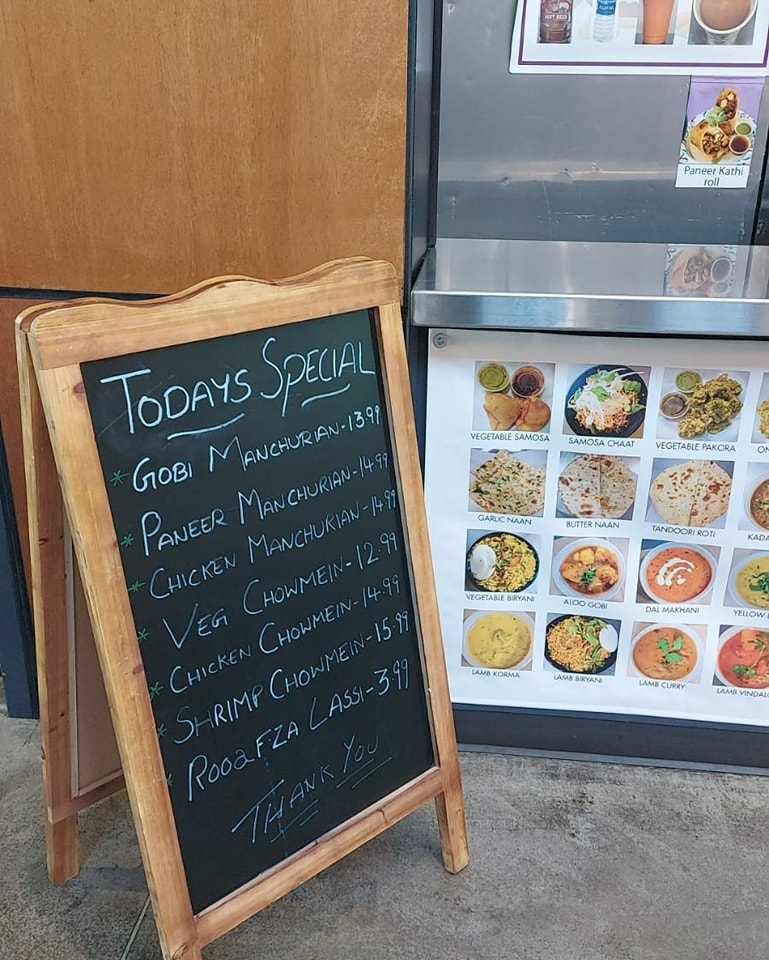 TODAYS SPECIAL
* GOBI MANCHURIAN-13.99
* PANEER MANCHURIAN-14.99
* CHICKEN MANCHURIAN-14.99
* VEG CHOWMEIN-12.99
* CHICKEN CHOWMEIN-14.99
* SHRIMP CHOWMEIN-15.99
* ROOaFZA LASSI-3.99
THANK YOU
Paneer Kathi
roll
VEGETABLE SAMOSA
SAMOSA CHAAT
VEGETABLE PAKORA
GARLIC NAAN
BUTTER NAAN
TANDOORI ROTI
VEGETABLE BIRYANI
ALOO GOBI
DAL MAKHANI
YELLOW
LAMB KORMA
LAMB BIRYANI
LAMB CURRY
LAMB VINDAL